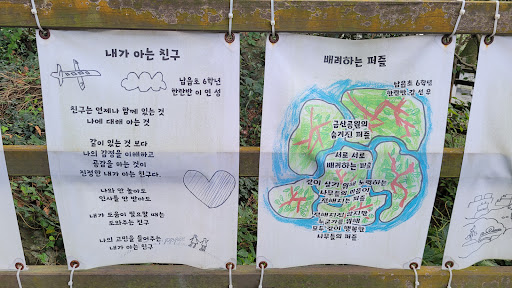 내가 아는 친구
남읍초 6학년
한란반 이 민 성
친구는 언제나 함께 있는 것
나에 대해 아는 것
같이 있는 것 보다
나의 감정을 이해하고
공감을 아는 것이
진정한 내가 아는 친구다.
나와 안 놀아도
인사를 안 받아도
내가 도움이 필요할 때는
도와주는 친구
나의 고민을 들어주는
내가 아는 친구
배려하는 퍼즐
남읍초 6학년
한란반 강 선 우
금산공원의
숨겨진 퍼즐
서로 서로
배려하는 퍼즐
같이 살기 위해 노력하는
나무들의 마음이
정해지는 퍼즐
누군가의
모두 같이 행복한
나무들의 퍼즐